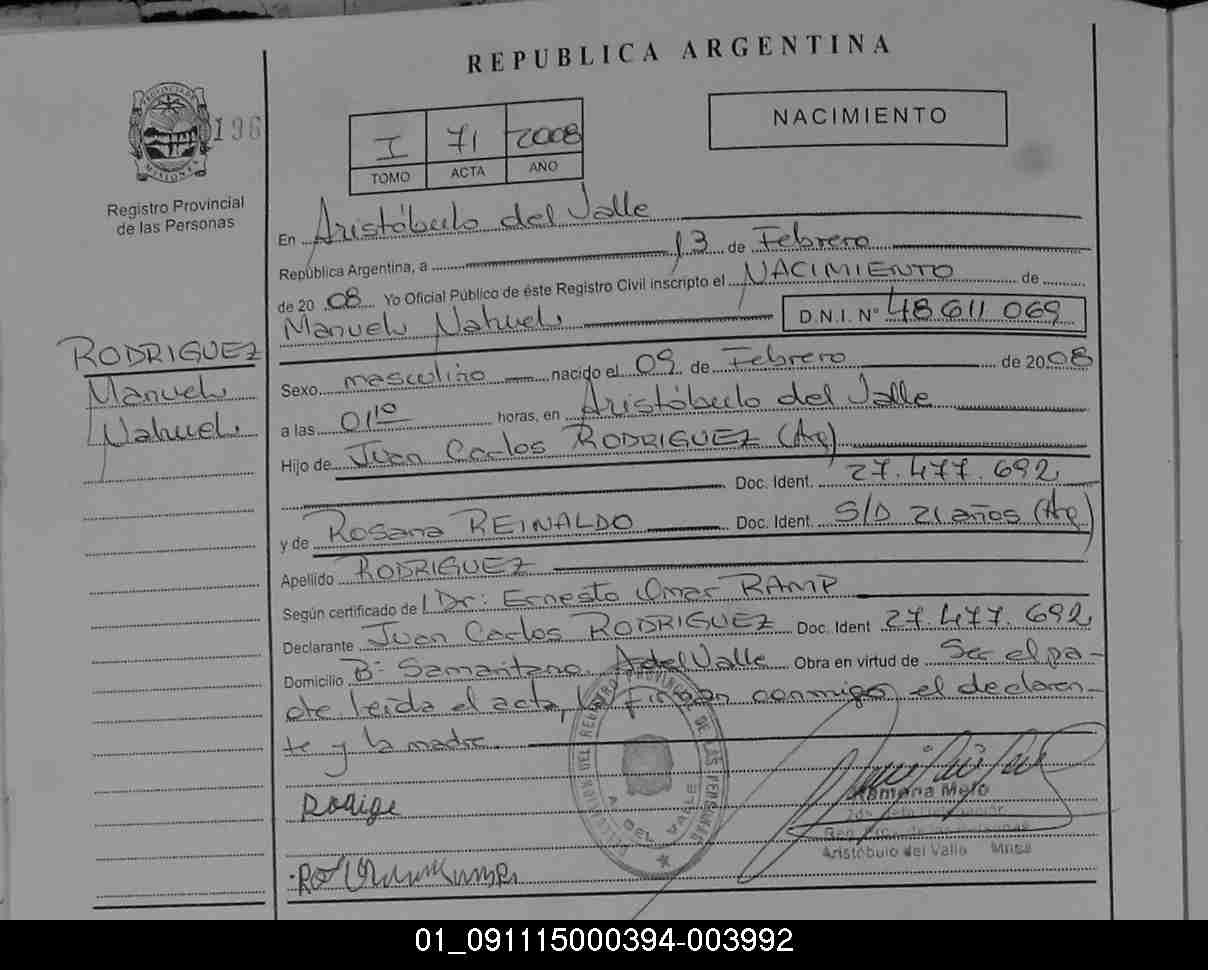 REPUBLICA ARGENTINA
PROVINCIA DE MISIONES
196
Registro Provincial
de las Personas
I 71 2008
TOMO ACTA AÑO
NACIMIENTO
En Aristóbulo del Valle
República Argentina, a 13 de Febrero
de 20 08 Yo Oficial Público de éste Registro Civil inscripto el NACIMIENTO de
Manuel Nahuel D.N.I. Nº 48 611 069
RODRIGUEZ
Manuel
Nahuel
Sexo masculino nacido el 09 de Febrero de 2008
a las 01 10 horas, en Aristóbulo del Valle
Hijo de Juan Carlos RODRIGUEZ (Ar)
Doc. Ident. 27.477.692
y de Rosana REINALDO Doc. Ident. S/D 21 años (Ar)
Apellido RODRIGUEZ
Según certificado de Dr: Ernesto Omar RAMP
Declarante Juan Carlos RODRIGUEZ Doc. Ident 27.477.692
Domicilio Bº Samaritano A del Valle Obra en virtud de Ser el pa-
dre leida el acta, la firman conmigo el declaran-
te y la madre
Ramona Melo
Reg. Prov. de las Personas
Aristóbulo del Valle Mnes
A. DEL VALLE
DE LAS PERSONAS
01_091115000394-003992